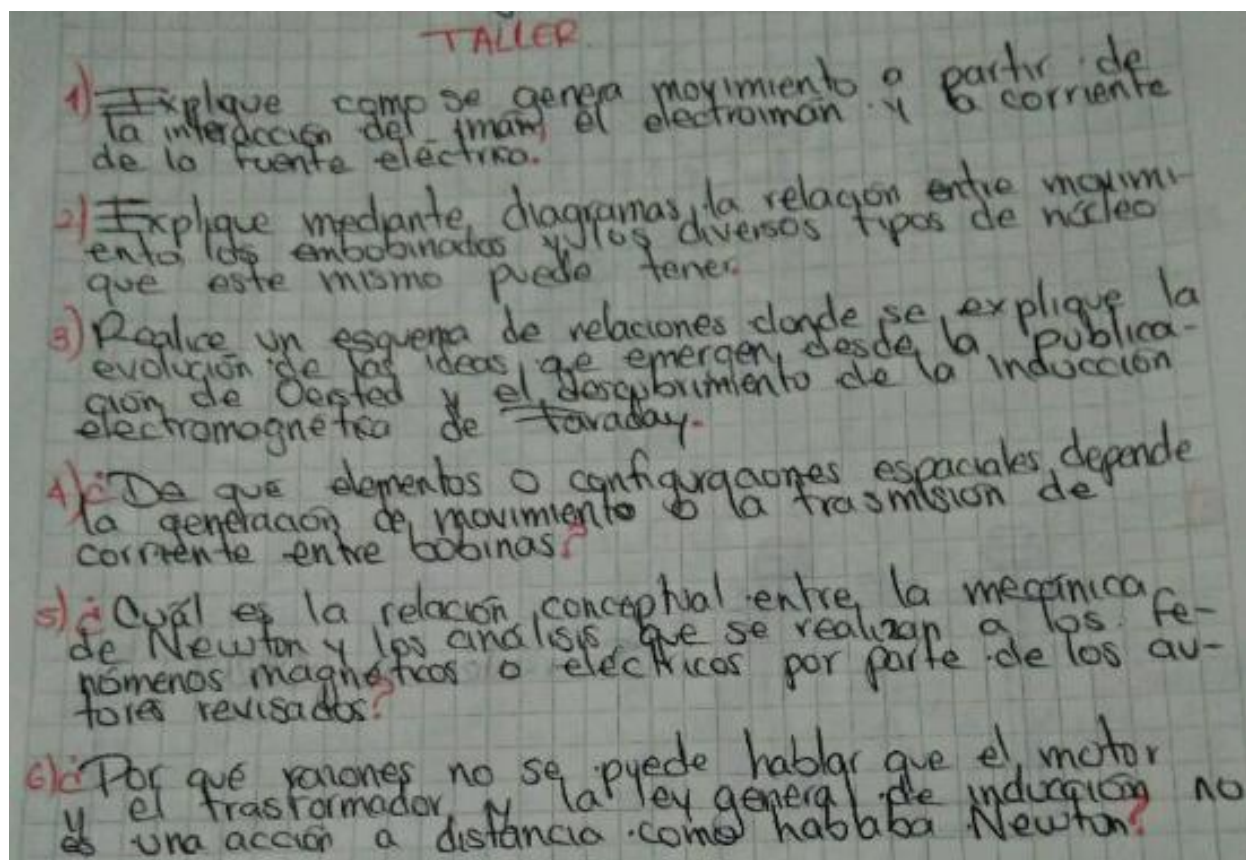 TALLER
1) Explique como se genera movimiento a partir de
la interacción del iman, el electroiman y la corriente
de la fuente eléctrica.
2) Explique mediante diagramas, la relación entre movimi-
ento los embobinados y los diversos tipos de núcleo
que este mismo puede tener.
3) Realice un esquema de relaciones donde se explique la
evolución de las ideas que emergen desde la publica-
ción de Oersted y el descubrimiento de la inducción
electromagnética de Faraday.
4) ¿De que elementos o configuraciones espaciales, depende
la generación de movimiento o la trasmisión de
corriente entre bobinas?
5) ¿Cuál es la relación conceptual entre la mecánica
de Newton y los analisis que se realizan a los fe-
nómenos magnéticos o eléctricos por parte de los au-
tores revisados?
6) ¿Por qué razones no se puede hablar que el motor
y el trasformador y la ley general de inducción no
es una acción a distancia como hablaba Newton?